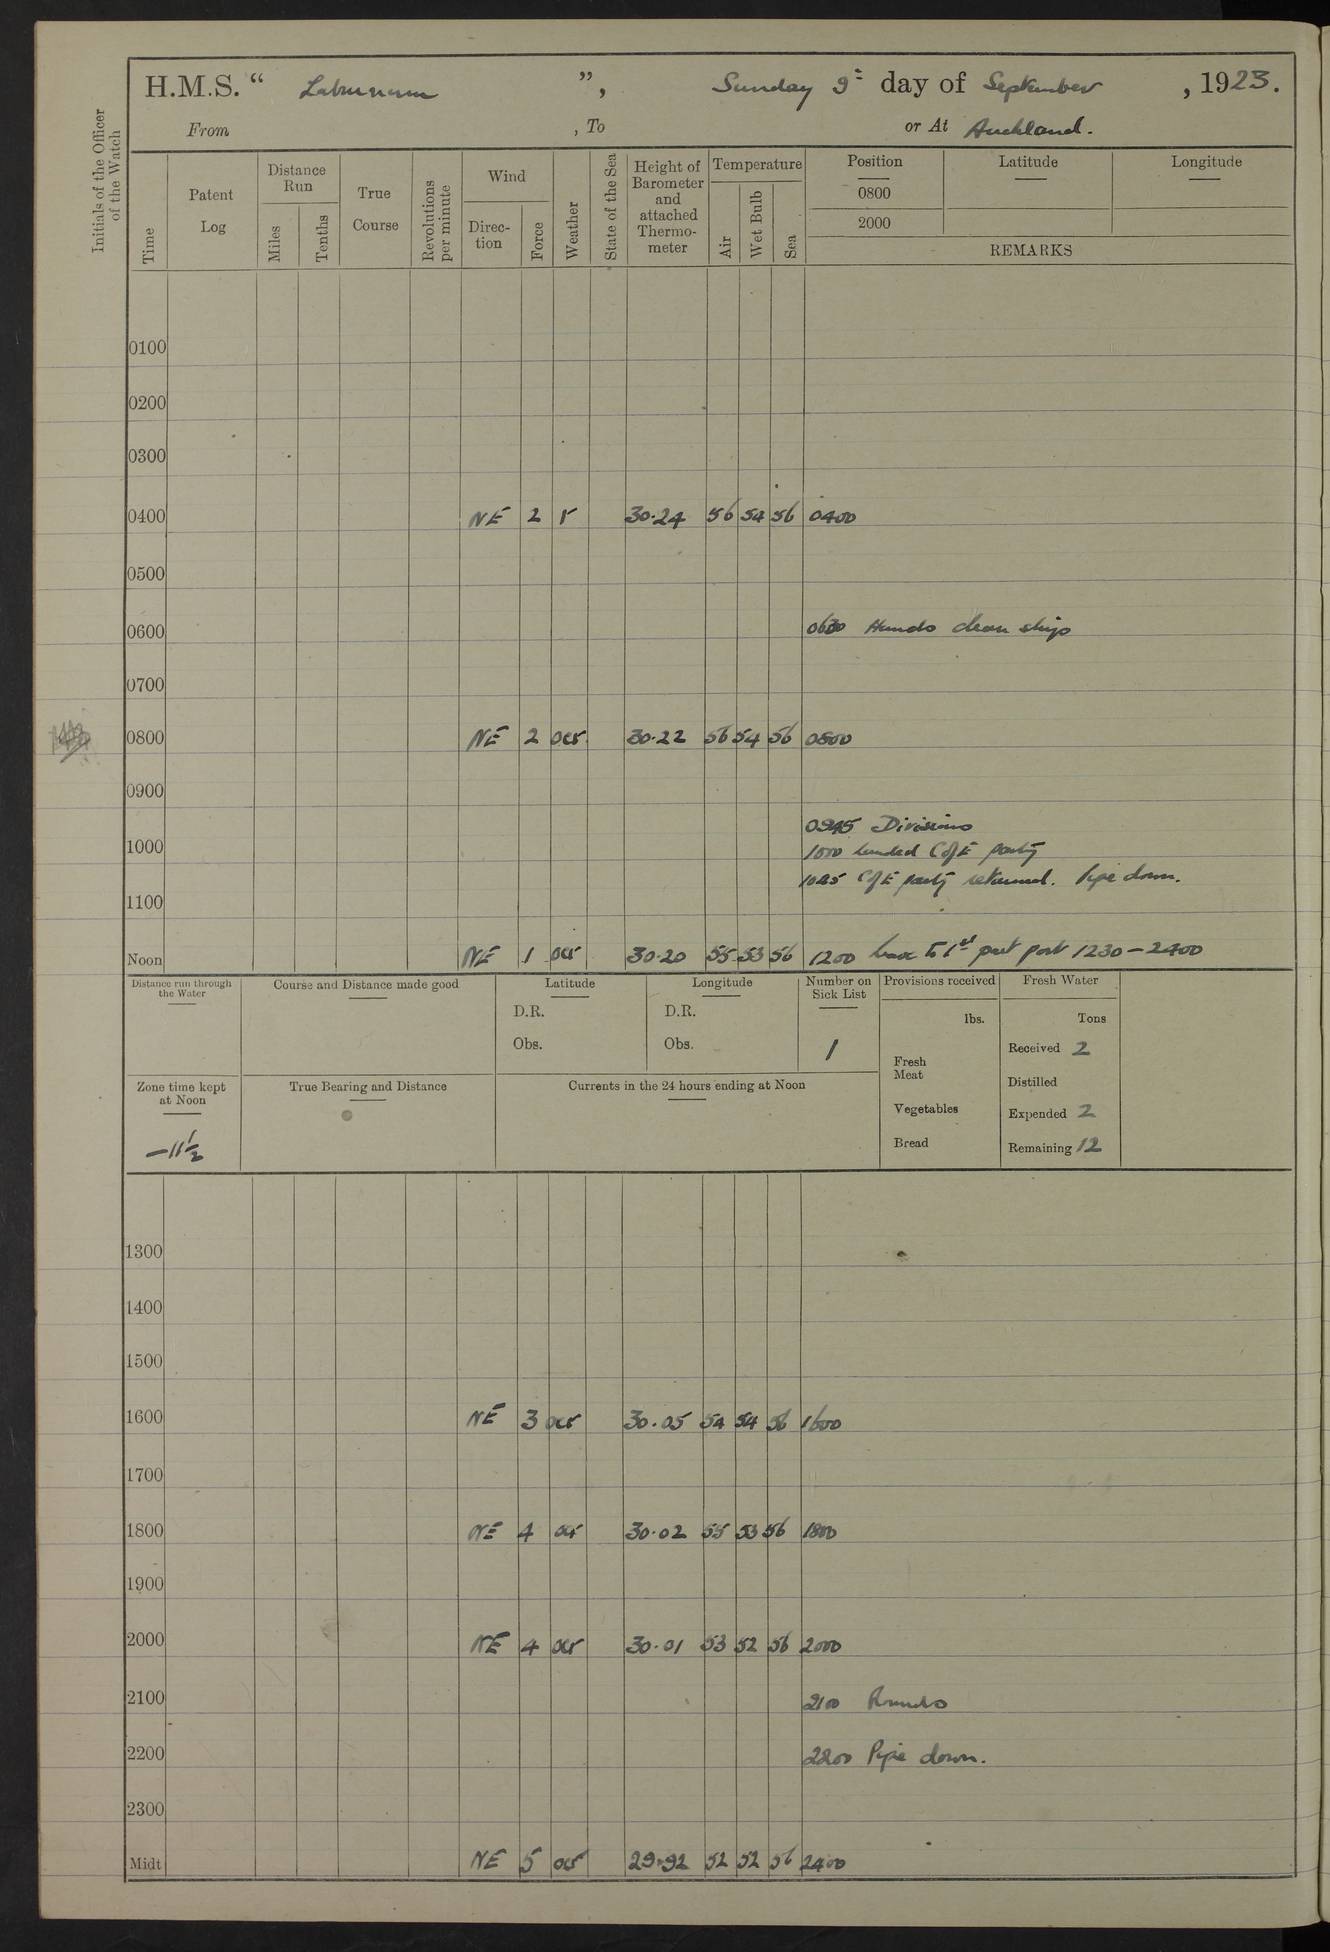 H.M.S. “ Laburnum ”, Sunday 9th day of September, 1923.
From , To or At Auckland.
Initials of the Officer of the Watch
Time
Patent Log
Distance Run
Miles
Tenths
True Course
Revolutions per minute
Wind
Direction
Force
Weather
State of the Sea
Height of Barometer and attached Thermometer
Temperature
Air
Wet Bulb
Sea
Position
Latitude
Longitude
0800
2000
REMARKS
0100
0200
0300
0400 NE 2 r 30.24 56 54 56 0400
0500
0600 0630 Hands clean ship
0700
0800 NE 2 ocr 30.22 56 54 56 0800
0900
0945 Divisions
1000 1000 landed C of E party
1045 C of E party returned. Pipe down.
1100
Noon NE 1 ocr 30.20 55 53 56 1200 leave to 1st part port 1230 – 2400
Distance run through the Water
Course and Distance made good
Latitude
D.R.
Obs.
Longitude
D.R.
Obs.
Number on Sick List
1
Provisions received
lbs.
Fresh Meat
Vegetables
Bread
Fresh Water
Tons
Received 2
Distilled
Expended 2
Remaining 12
Zone time kept at Noon
– 11 1/2
True Bearing and Distance
Currents in the 24 hours ending at Noon
1300
1400
1500
1600 NE 3 ocr 30.05 54 54 56 1600
1700
1800 NE 4 ocr 30.02 55 53 56 1800
1900
2000 NE 4 ocr 30.01 53 52 56 2000
2100 2100 Rounds
2200 2200 Pipe down.
2300
Midt NE 5 ocr 29.92 52 52 56 2400